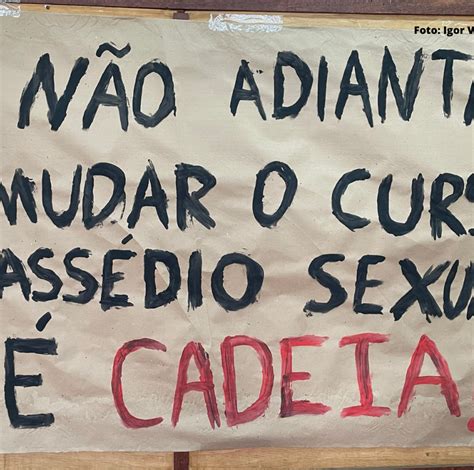 Foto: Igor W
NÃO ADIANTA
MUDAR O CURS
ASSÉDIO SEXUA
É CADEIA.